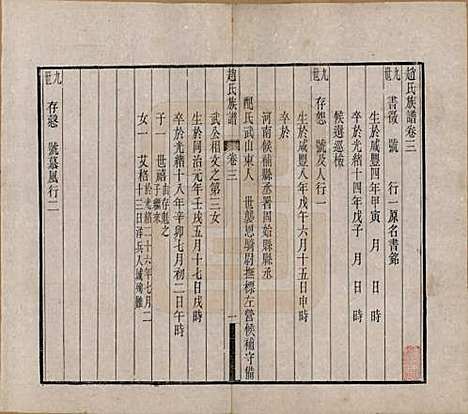 趙氏族譜卷三
九世 書徵 號 行一原名書銘
生於咸豐四年甲寅 月 日 時
卒於光緒十四年戊子 月 日時
候選巡檢
九世 存恕 號及人行一
生於咸豐八年戊午六月十五日申時
卒於
河南候補縣丞署固始縣縣丞
配氏武山東人 世襲恩騎尉撫標左營候補守備
趙氏族譜 卷三 一
武公相文之第三女
生於同治元年壬戌五月十七日戌時
卒於光緒十八年辛卯七月初二日午時
子一 世禧 由存魁之子繼來
女一 艾格 於光緒二十六年七月二十三日洋兵入城殉難
九世 存愨 號慕風行二